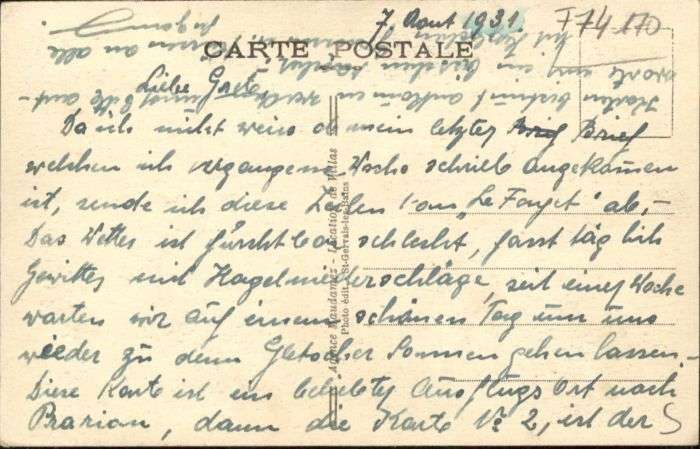 7. Aout 1931.
T74 170
CARTE POSTALE
Liebe Grete
Da ich nicht weiss ob mein letzter Brief
welchen ich vergangene Woche schrieb angekommen
ist, sende ich diese Zeilen vom "Le Fayet" ab,-
Das Wetter ist furchtbar schlecht, fasst täglich
Gewitter mit Hagelniederschläge, seit einer Woche
warten wir auf einen schönen Tag um uns
wieder zu dem Gletscher Sonnen gehen lassen.
Diese Karte ist ein beliebter Ausflugs Ort nach
Prarion, dann die Karte No 2, ist der S
Agence Maudamez - Location de Villas
Photo édit. à St-Gervais-les-Bains